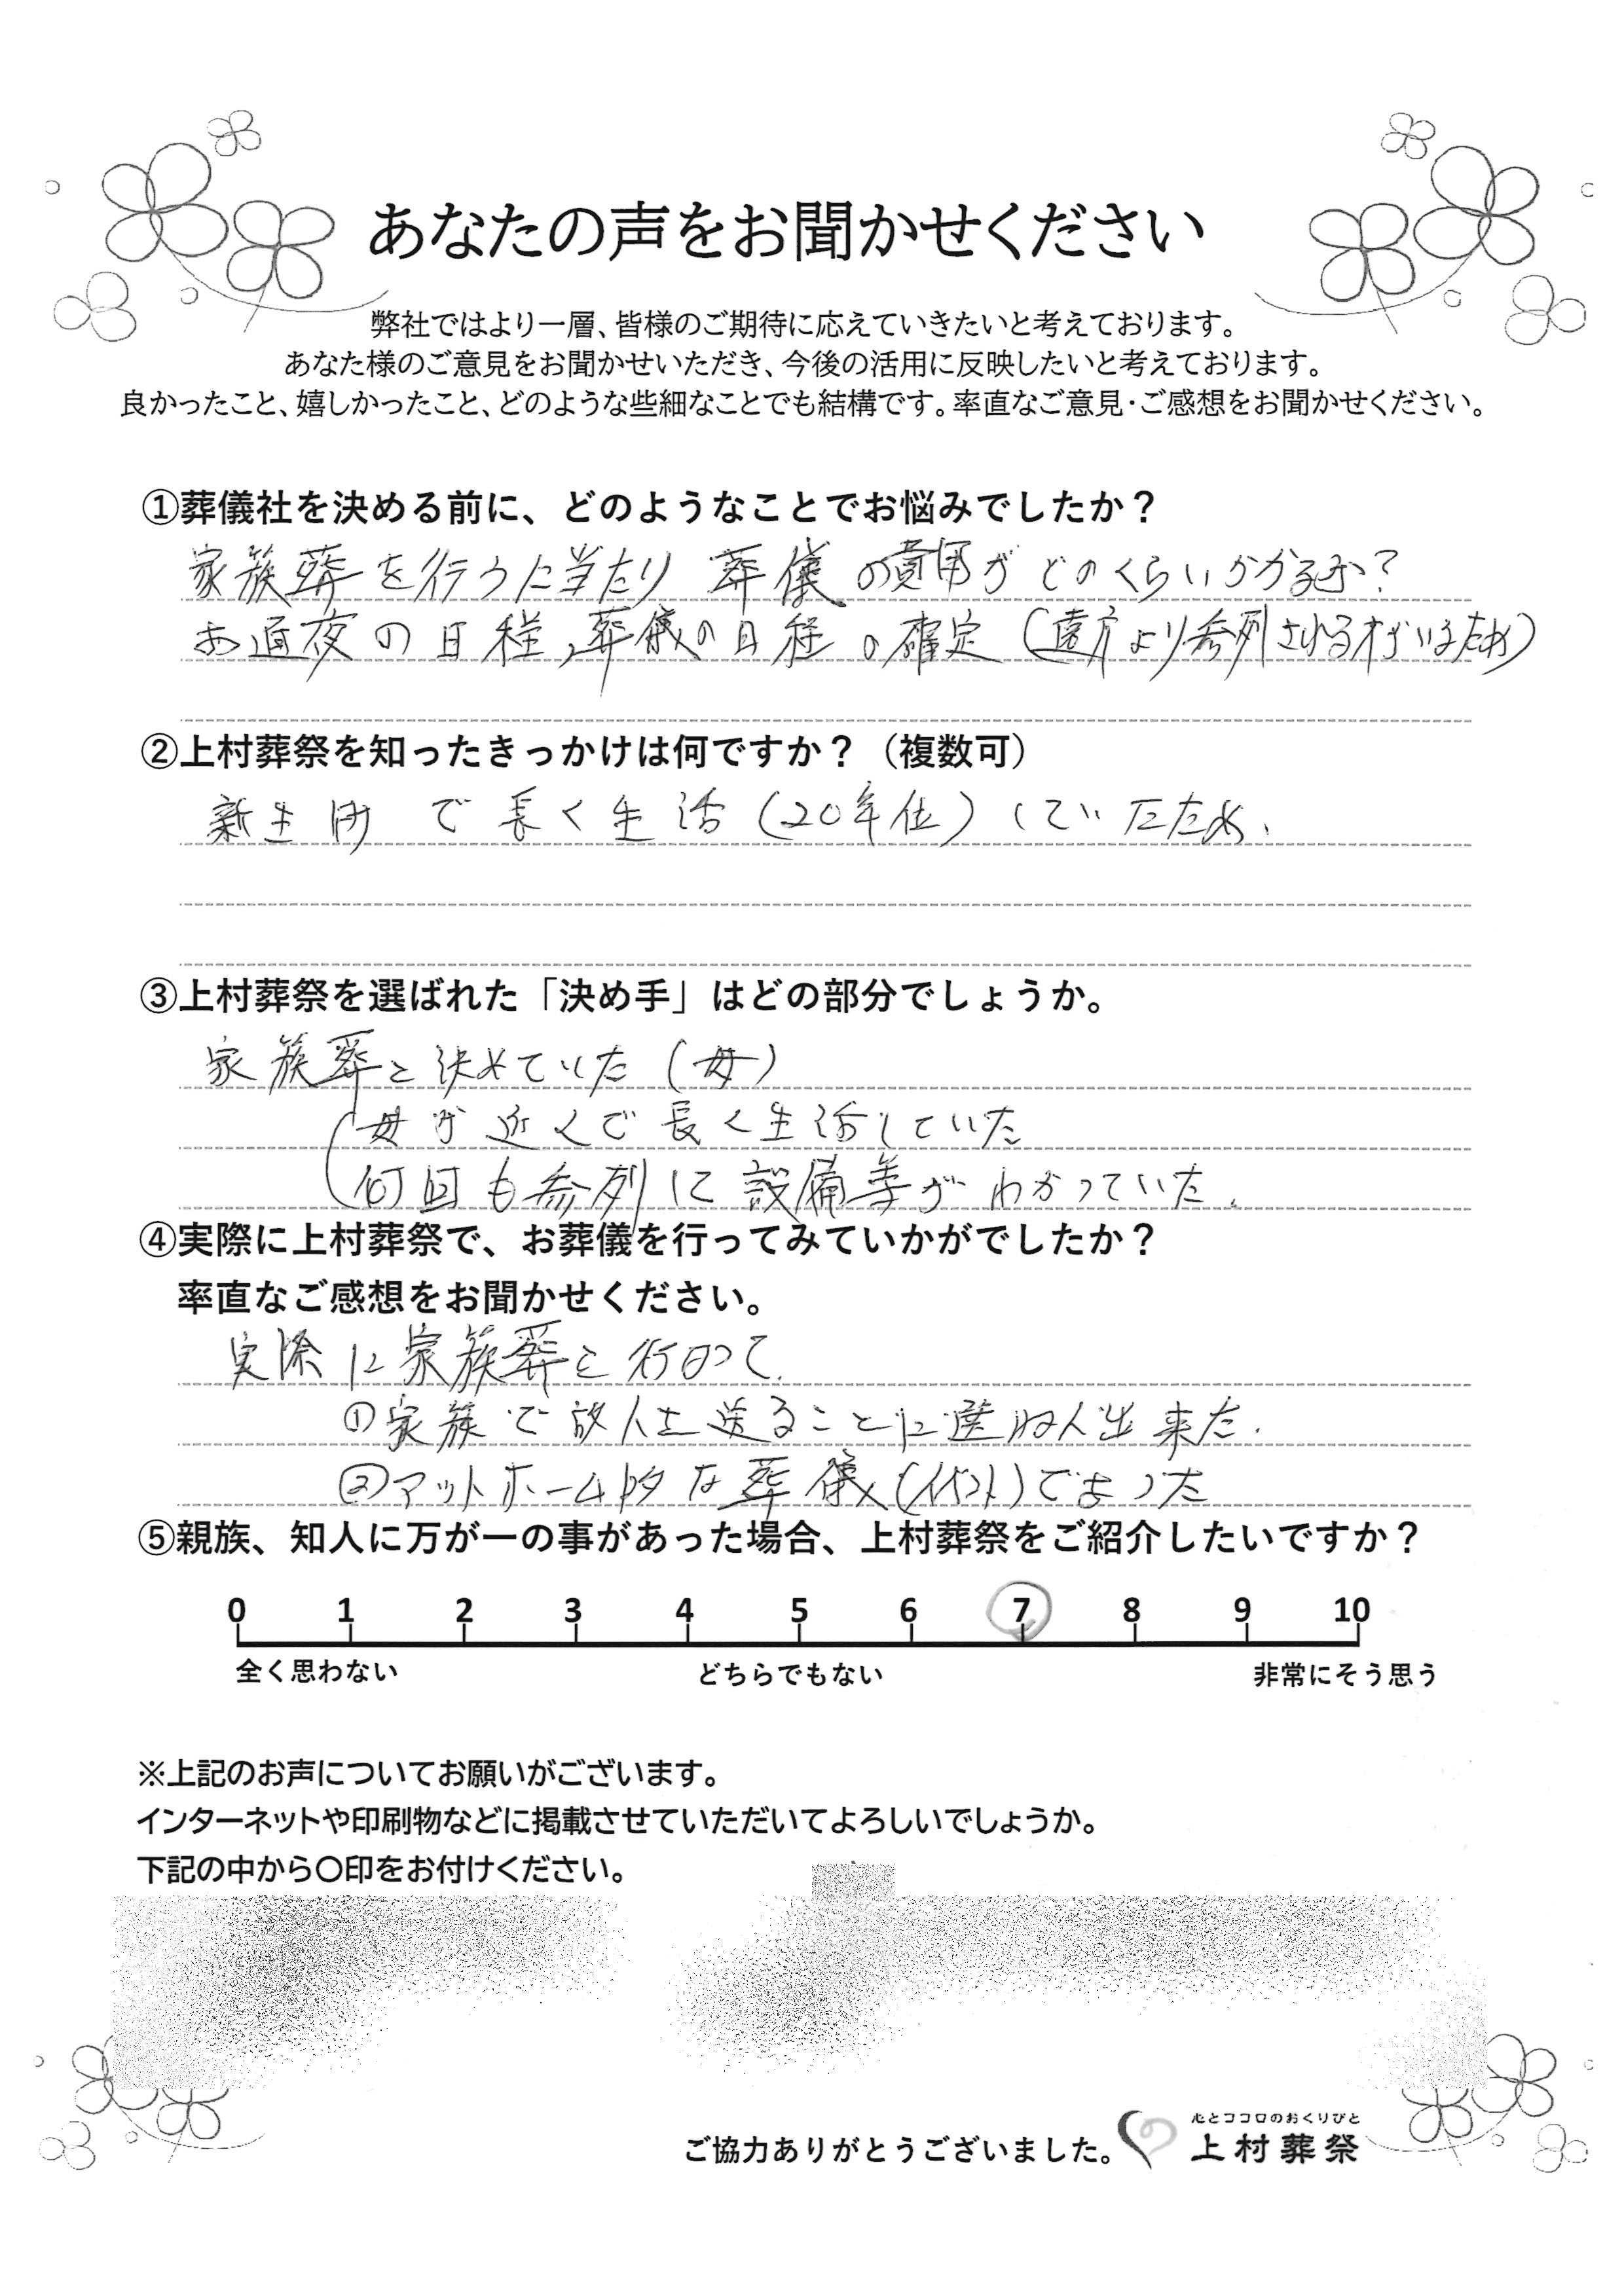 あなたの声をお聞かせください
弊社ではより一層、皆様のご期待に応えていきたいと考えております。
あなた様のご意見をお聞かせいただき、今後の活用に反映したいと考えております。
良かったこと、嬉しかったこと、どのような些細なことでも結構です。率直なご意見・ご感想をお聞かせください。
①葬儀社を決める前に、どのようなことでお悩みでしたか？
家族葬を行うに当たり 葬儀の費用がどのくらいかかるか？
お通夜の日程、葬儀の日程の確定（遠方より参列される方がいるため）
②上村葬祭を知ったきっかけは何ですか？（複数可）
新生町で長く生活（20年位）していたため、
③上村葬祭を選ばれた「決め手」はどの部分でしょうか。
家族葬と決めていた（母）
母が近くで長く生活していた
何回も参列に設備等がわかっていた。
④実際に上村葬祭で、お葬儀を行ってみていかがでしたか？
率直なご感想をお聞かせください。
実際に家族葬を行なって
①家族で故人を送ることに 出来た.
②アットホーム的な葬儀 であった
⑤親族、知人に万が一の事があった場合、上村葬祭をご紹介したいですか？
0 1 2 3 4 5 6 7 8 9 10
全く思わない どちらでもない 非常にそう思う
※上記のお声についてお願いがございます。
インターネットや印刷物などに掲載させていただいてよろしいでしょうか。
下記の中から〇印をお付けください。
ご協力ありがとうございました。
心とココロのおくりびと
上村葬祭